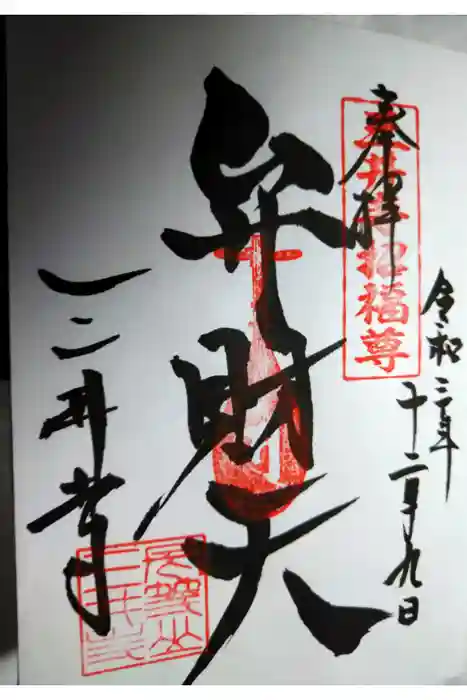 令和三年十二月九日
奉拝
三井寺招福尊
弁財天
三井寺